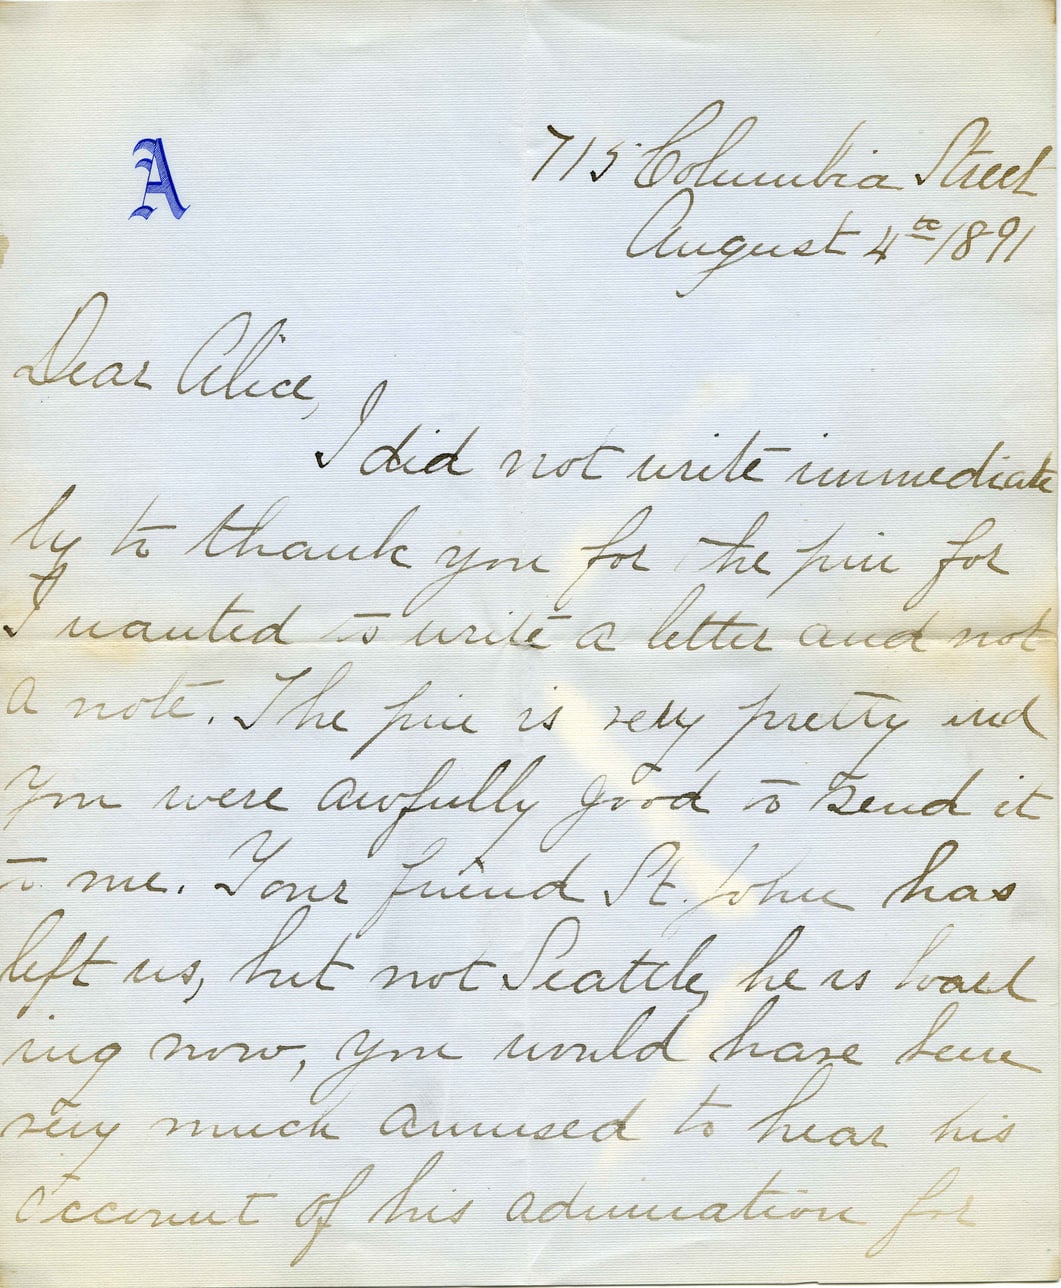 A
715 Columbia Street
August 4th 1891
Dear Alice,
I did not write immediate
ly to thank you for the pin for
I wanted to write a letter and not
a note. The pin is very pretty and
you were awfully good to send it
to me. Your friend St. John has
left us, but not Seattle, he is board
ing now, you would have been
very much amused to hear his
account of his admiration for